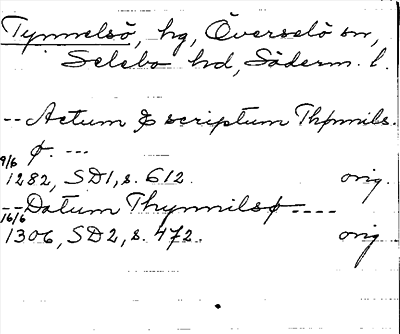 Tynnelsö, hg, Överselö sn,
Selebo hd, Söderm. l.
-- Actum & scriptum Thynnils
ø. ---
9/6
1282, SD1, s. 612. orig.
-- Datum Thynnilsø ----
16/6
1306, SD2, s. 472. orig